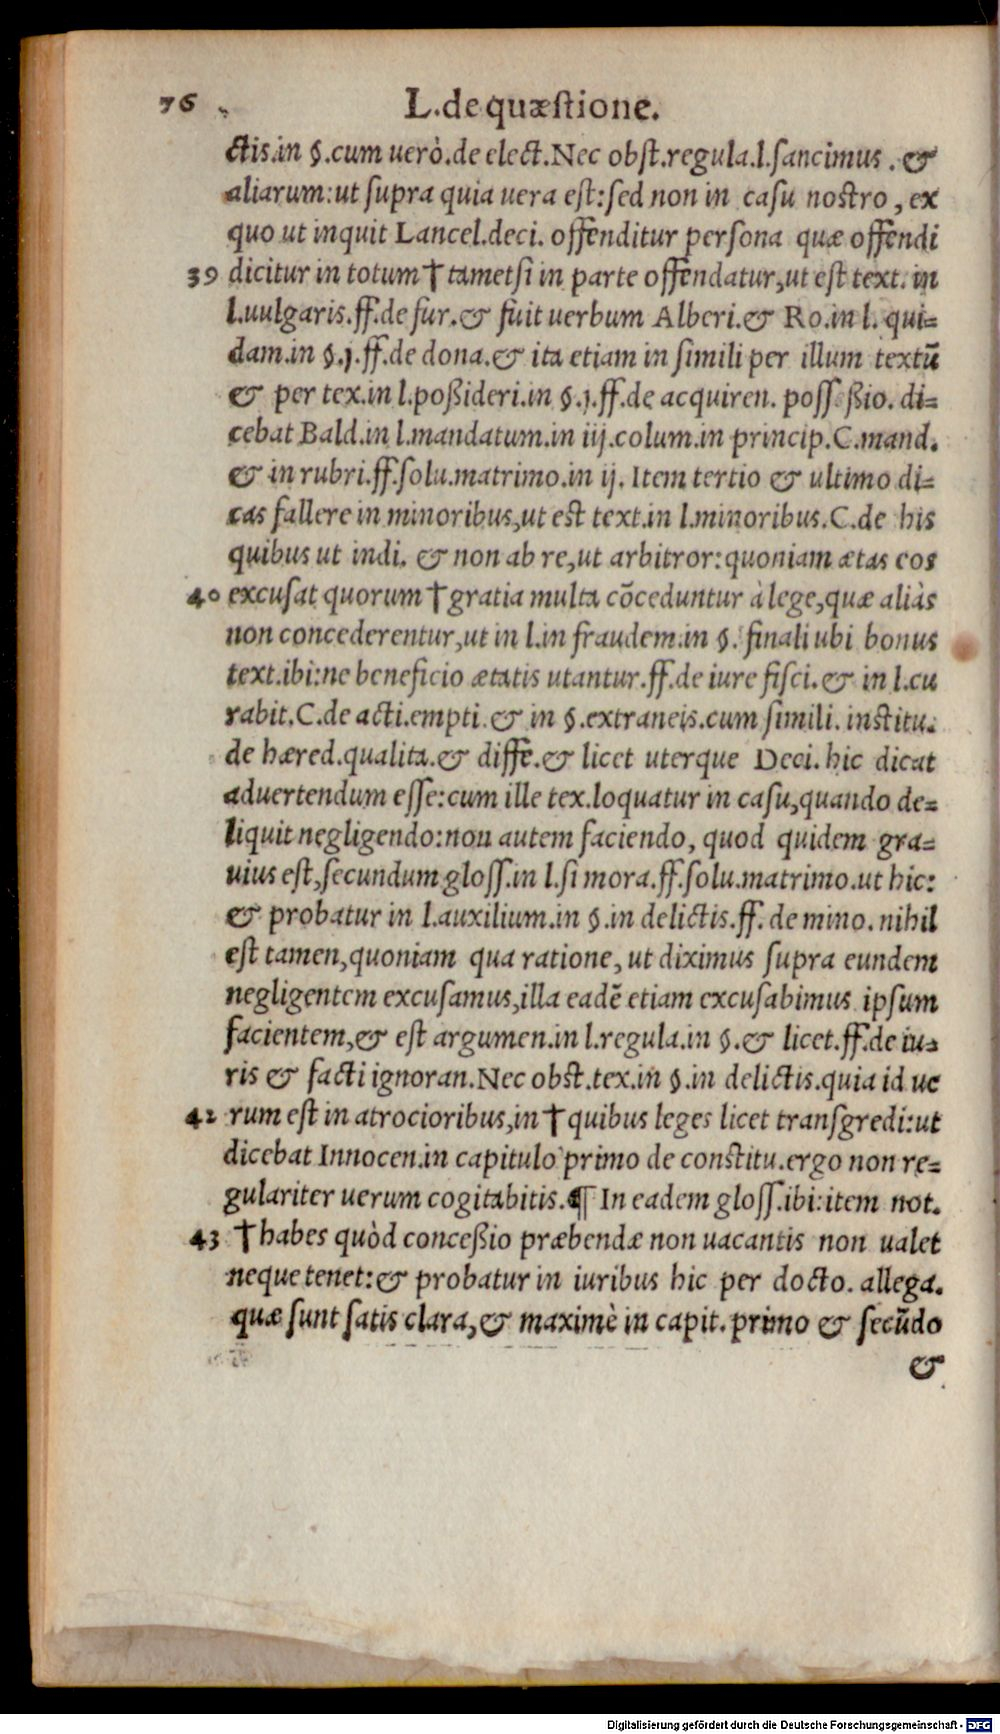 76 L.de quæstione.
ctis.in §.cum uerò.de elect.Nec obst.regula.l.sancimus.&
aliarum:ut supra quia uera est:sed non in casu nostro, ex
quo ut inquit Lancel.deci. offenditur persona quæ offendi
39 dicitur in totum † tametsi in parte offendatur,ut est text. in
l.uulgaris.ff.de fur.& fuit uerbum Alberi.& Ro.in l. qui=
dam.in §.j.ff.de dona.& ita etiam in simili per illum textū
& per tex.in l.poßideri.in §.j.ff.de acquiren. posseßio. di=
cebat Bald.in l.mandatum.in iij.colum.in princip.C.mand.
& in rubri.ff.solu.matrimo.in ij. Item tertio & ultimo di=
cas fallere in minoribus,ut est text.in l.minoribus.C.de his
quibus ut indi. & non ab re,ut arbitror:quoniam ætas eos
40 excusat quorum † gratia multa cōceduntur à lege,quæ aliàs
non concederentur,ut in l.in fraudem.in §. finali ubi bonus
text.ibi:ne beneficio ætatis utantur.ff.de iure fisci.& in l.cu
rabit.C.de acti.empti.& in §.extraneis.cum simili. institu.
de hæred.qualita.& diffe.& licet uterque Deci. hic dicat
aduertendum esse:cum ille tex.loquatur in casu,quando de=
liquit negligendo:non autem faciendo, quod quidem gra=
uius est,secundum gloss.in l.si mora.ff.solu.matrimo.ut hic:
& probatur in l.auxilium.in §.in delictis.ff. de mino. nihil
est tamen,quoniam qua ratione, ut diximus supra eundem
negligentem excusamus,illa eadē etiam excusabimus ipsum
facientem,& est argumen.in l.regula.in §.& licet.ff.de iu=
ris & facti ignoran.Nec obst.tex.in §.in delictis.quia id ue
42 rum est in atrocioribus,in † quibus leges licet transgredi:ut
dicebat Innocen.in capitulo primo de constitu.ergo non re=
gulariter uerum cogitabitis.¶ In eadem gloss.ibi:item not.
43 † habes quòd conceßio præbendæ non uacantis non ualet
neque tenet:& probatur in iuribus hic per docto. allega.
quæ sunt satis clara,& maximè in capit. primo & secūdo
&
Digitalisierung gefördert durch die Deutsche Forschungsgemeinschaft - DFG